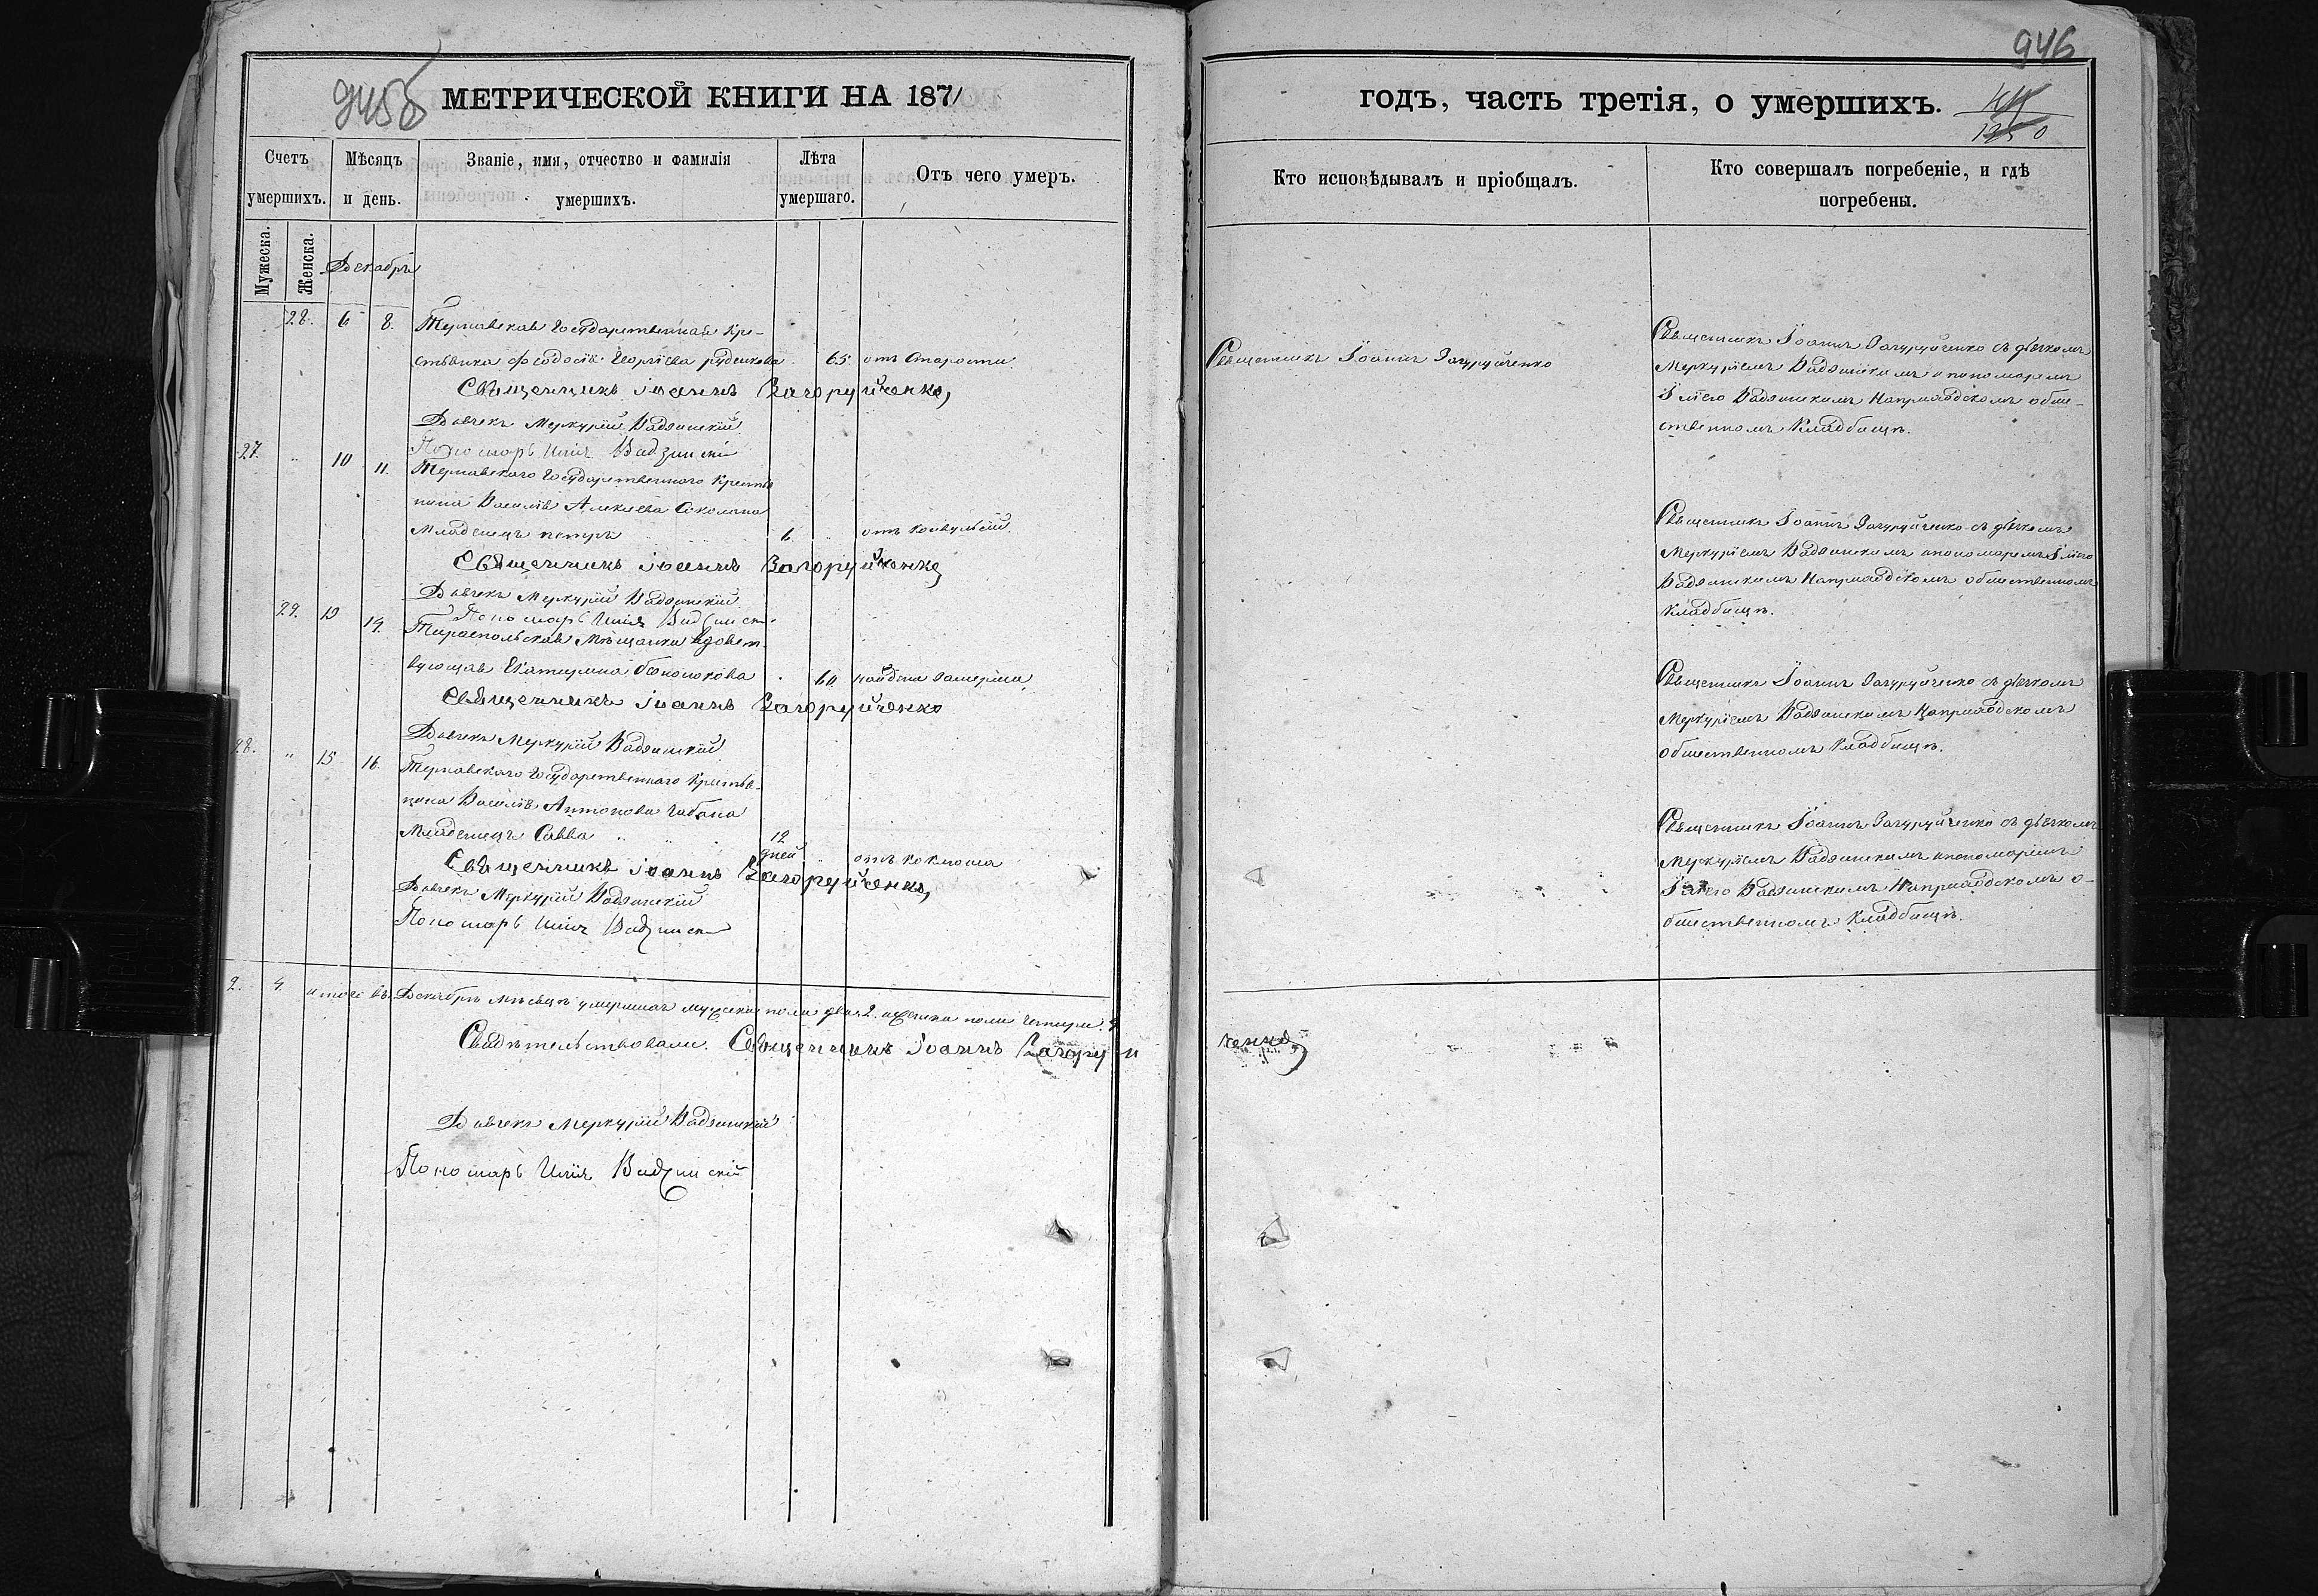 945б МЕТРИЧЕСКОЙ КНИГИ НА 1871
Счетъ умершихъ.
Мѣсяцъ и день.
Званіе, имя, отчество и фамилія умершихъ.
Лѣта умершаго.
Отъ чего умеръ.
Мужеска.
Женска.
Декабрь
28. 6 8. Терновская Государственная Кре-
стьянка Феодосія Георгіева Руденкова 65. отъ Старости
Священникъ Іоаннъ Загоруйченко,
Дьячекъ Меркурій Вадзинскій
Пономарь Илія Вадзинскій
27. " 10 11. Терновскаго Государственнаго Крестья
нина Василія Алексѣева
Младенецъ Петръ 6. отъ конвульсій
Священникъ Іоаннъ Загоруйченко
Дьячекъ Меркурій Вадзинскій
Пономарь Илія Вадзински
29. 13 14. Тираспольская Мѣщанка вдовст
вующая Екатерина 60 найдена замерзша
Священникъ Іоаннъ Загоруйченко
Дьячекъ Меркурій Вадзинскій
28. " 15 16. Терновскаго Государственнаго Крестья-
нина Василія Антонова Чабана
Младенецъ Савва 12 дней отъ коклюша
Священникъ Іоаннъ Загоруйченко,
Дьячекъ Меркурій Вадзинскій
Пономарь Илія Вадзински
2. 4. итого въ Декабрѣ мѣсяцѣ умершихъ мужска пола два. 2. а женска пола четыре. 4
Свидѣтельствовали. Священникъ Іоаннъ Загоруй
Дьячекъ Меркурій Вадзинскій
Пономарь Илія Вадзинскій
946
годъ, часть третія, о умершихъ.
Кто исповѣдывалъ и пріобщалъ.
Кто совершалъ погребеніе, и гдѣ
погребены.
Священникъ Іоаннъ Загоруйченко
Священникъ Іоаннъ Загоруйченко съ дьячкомъ
Меркуріемъ Вадзинскимъ и пономаремъ
Іліею Вадзинскимъ На приходскомъ обще-
ственномъ Кладбищѣ.
Священникъ Іоаннъ Загоруйченко съ дьячкомъ
Меркуріемъ Вадзинскимъ и пономаремъ Іліею
Вадзинскимъ На приходскомъ общественномъ
Кладбищѣ.
Священникъ Іоаннъ Загоруйченко съ дьячкомъ
Меркуріемъ Вадзинскимъ На приходскомъ
общественномъ Кладбищѣ.
Священникъ Іоаннъ Загоруйченко съ дьячкомъ
Меркуріемъ Вадзинскимъ и пономаремъ
Іліею Вадзинскимъ На приходскомъ о-
бщественномъ Кладбищѣ.
ченко